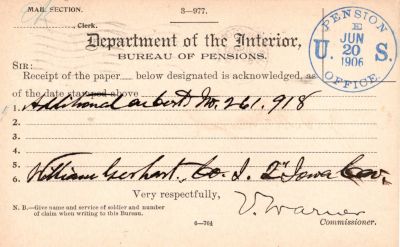 MAIL SECTION.
3—977.
, Clerk.
Department of the Interior,
BUREAU OF PENSIONS.
PENSION
E
JUN
U. S.
20
1906
OFFICE.
SIR:
Receipt of the paper below designated is acknowledged, as
of the date stamped above
1. Additional No. 261.918
2.
3.
4.
5.
6. William Gerhart. Co. I. 2" Iowa Cav.
Very respectfully,
V. Warner
Commissioner.
N. B.—Give name and service of soldier and number
of claim when writing to this Bureau.